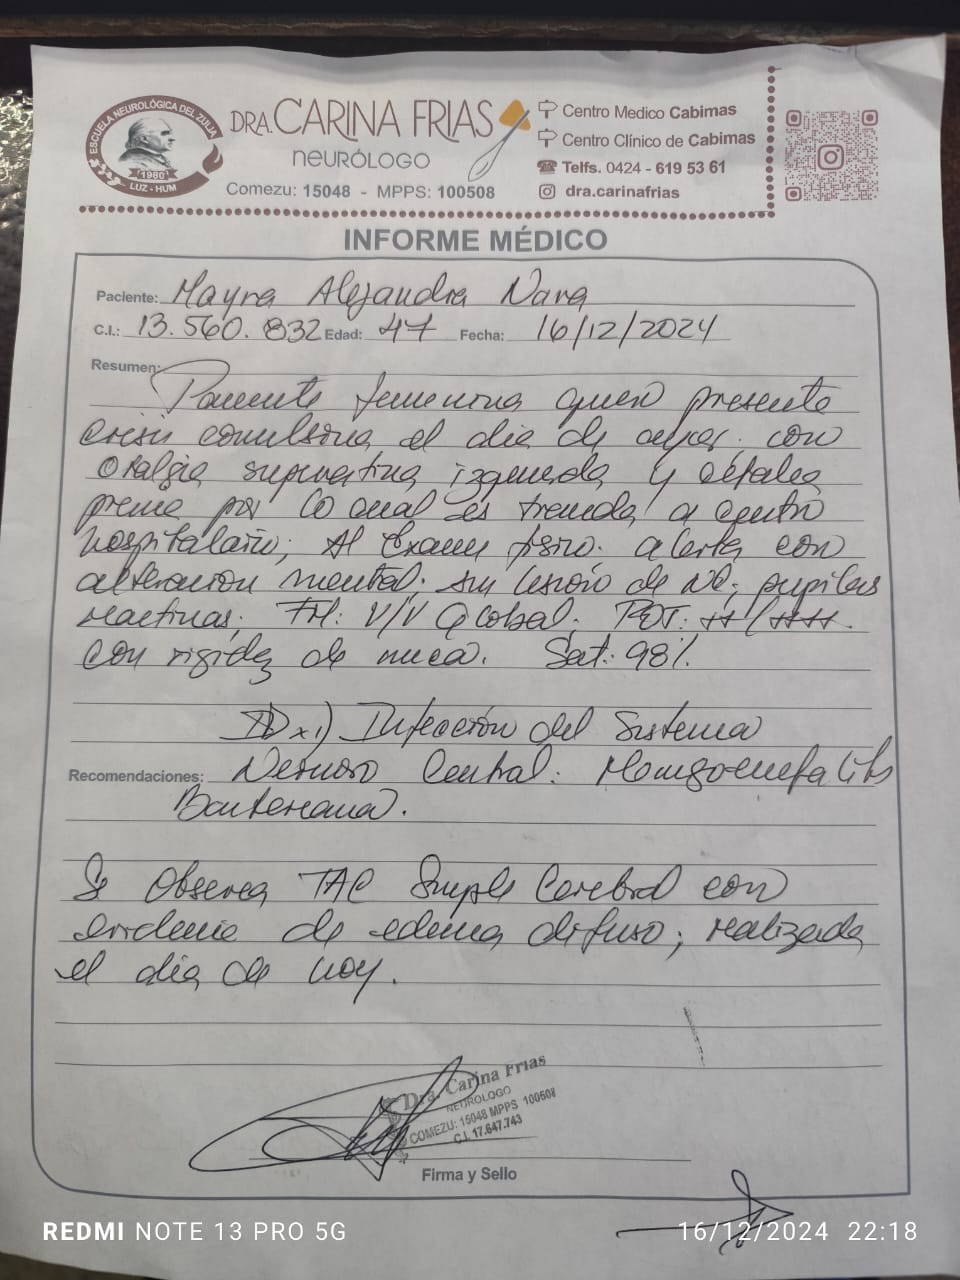 ESCUELA NEUROLÓGICA DEL ZULIA
1980
LUZ - HUM
DRA. CARINA FRIAS
NEURÓLOGO
Comezu: 15048 - MPPS: 100508
Centro Medico Cabimas
Centro Clínico de Cabimas
Telfs. 0424 - 619 53 61
dra.carinafrias
INFORME MÉDICO
Paciente: Mayra Alejandra Nava
C.I.: 13.560.832 Edad: 47 Fecha: 16/12/2024
Resumen:
Paciente femenina quien presente
crisis convulsiva el dia de ayer. con
Otalgia supurativa izquierda y cefalea
previa por lo cual es treuda a centro
hospitalario; Al Examen fisico. alerta con
alteracion mental. sin lesión de NC; pupilas
reactivas. FM: V/V Global. ROT: ++/++++.
con rigidez de nuca. Sat: 98%.
IDx 1) Infección del Sistema
Recomendaciones: Nervioso Central. Meningoencefalitis
Bacteriana.
Se Observa TAC Simple Cerebral con
evidencia de edema difuso; realizada
el dia de hoy.
Dra. Carina Frias
NEUROLOGO
COMEZU: 15048 MPPS 100508
C.I. 17.847.743
Firma y Sello
REDMI NOTE 13 PRO 5G
16/12/2024 22:18